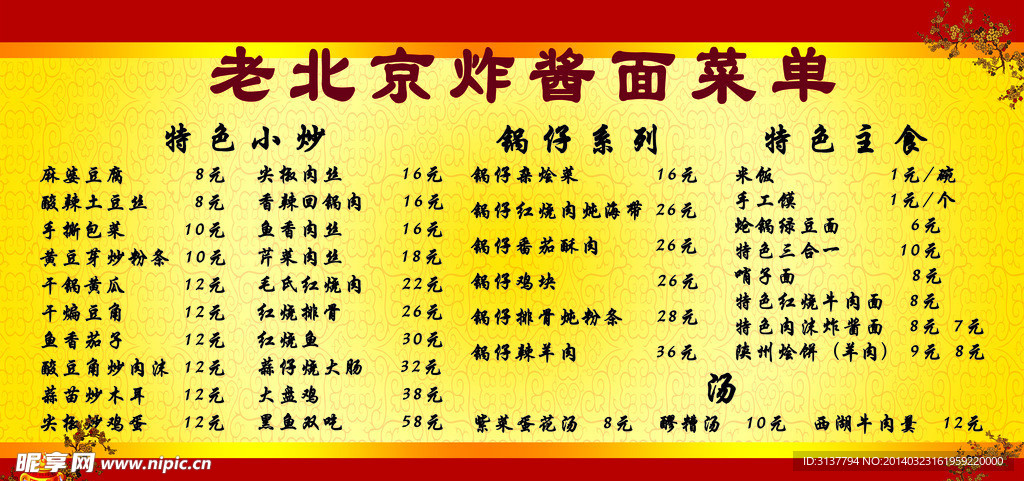 老北京炸酱面菜单
特色小炒
麻婆豆腐 8元 尖椒肉丝 16元
酸辣土豆丝 8元 香辣回锅肉 16元
手撕包菜 10元 鱼香肉丝 16元
黄豆芽炒粉条 10元 芹菜肉丝 18元
干锅黄瓜 12元 毛氏红烧肉 22元
干煸豆角 12元 红烧排骨 26元
鱼香茄子 12元 红烧鱼 30元
酸豆角炒肉沫 12元 蒜仔烧大肠 32元
蒜苗炒木耳 12元 大盘鸡 38元
尖椒炒鸡蛋 12元 黑鱼双吃 58元
锅仔系列
锅仔杂烩菜 16元
锅仔红烧肉炖海带 26元
锅仔番茄酥肉 26元
锅仔鸡块 26元
锅仔排骨炖粉条 28元
锅仔辣羊肉 36元
特色主食
米饭 1元/碗
手工馍 1元/个
炝锅绿豆面 6元
特色三合一 10元
哨子面 8元
特色红烧牛肉面 8元
特色肉沫炸酱面 8元 7元
陕州烩饼（羊肉） 9元 8元
汤
紫菜蛋花汤 8元 醪糟汤 10元 西湖牛肉羹 12元
昵享网 www.nipic.cn
ID:3137794 NO:20140323161959220000